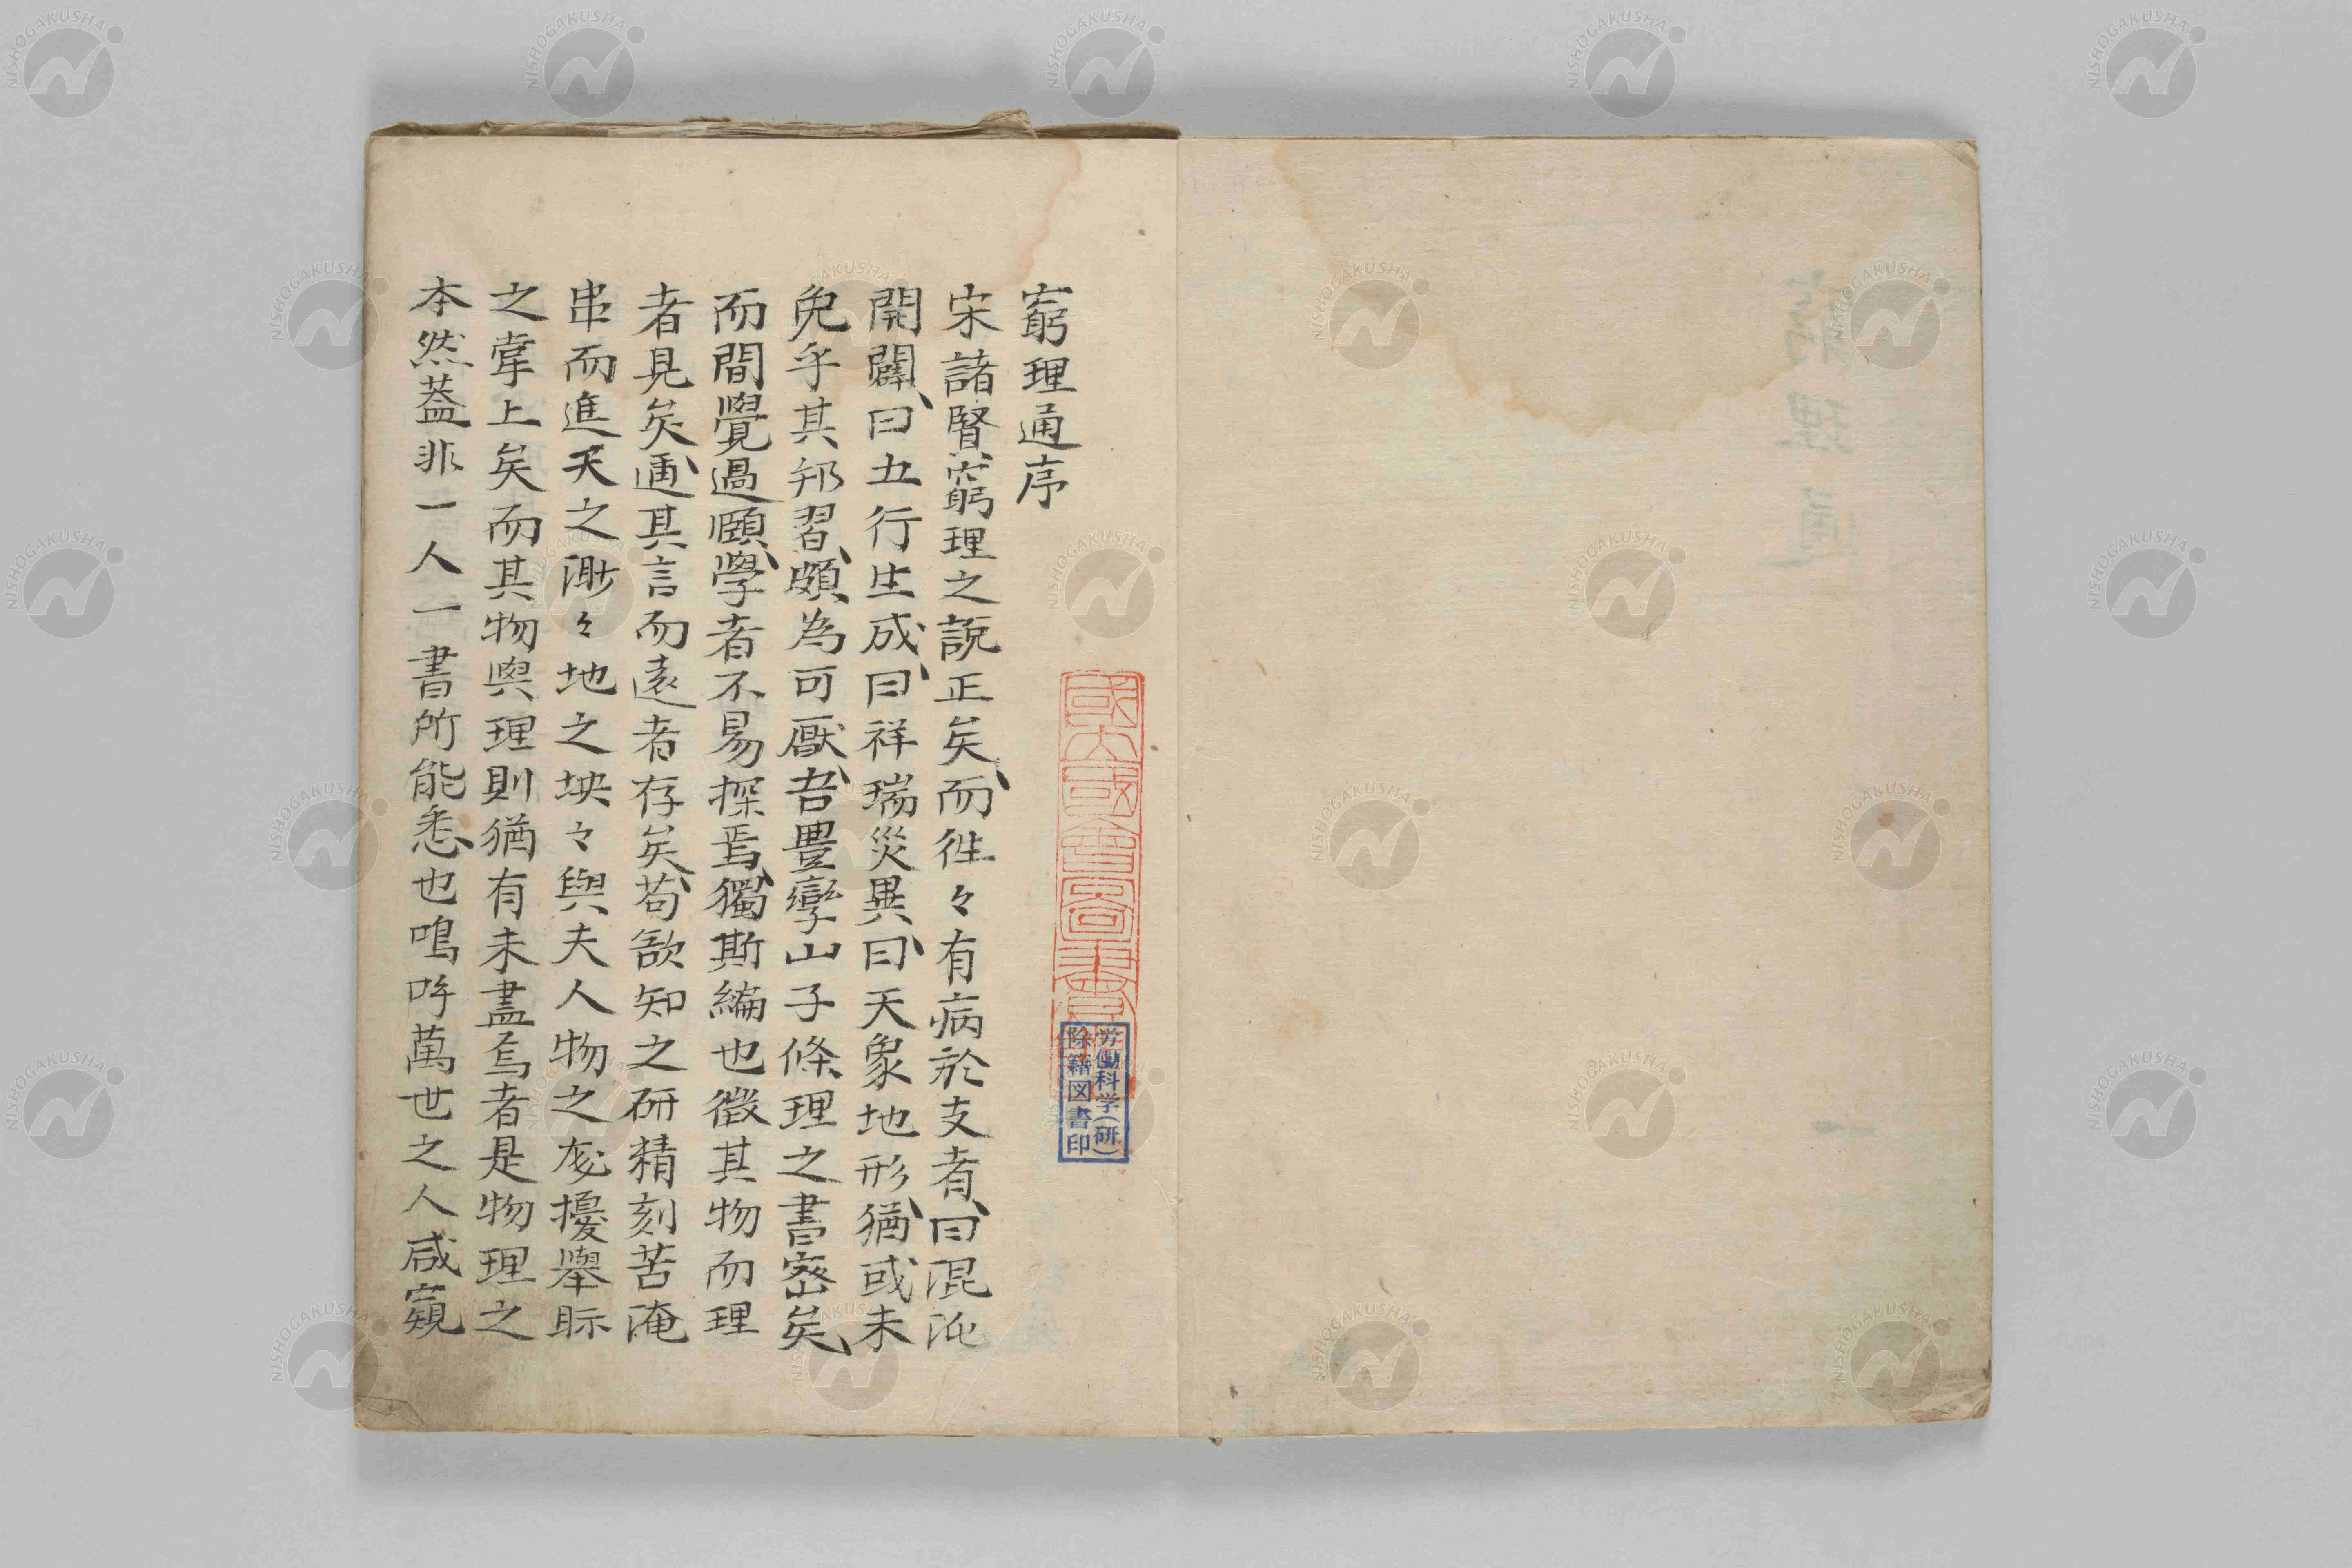 窮理通序
宋諸賢窮理之説正矣、而往々有病於支者、曰混沌
開闢、曰五行生成、曰祥瑞災異、曰天象地形、猶或未
免乎其邦習、頗為可厭、吾豊孿山子條理之書密矣、
而間覺過頤、學者不易探焉、獨斯編也徴其物而理
者見矣、邇其言而遠者存矣、苟欲知之研精刻苦淹
串而進天之渺々地之坱々與夫人物之厖擾舉眎
之掌上矣而其物與理則猶有未盡焉者是物理之
本然葢非一人一書所能悉也嗚呼萬世之人咸窺
國立國會圖書
労働科学(研)
除籍図書印
窮理通
一
NISHOGAKUSHA